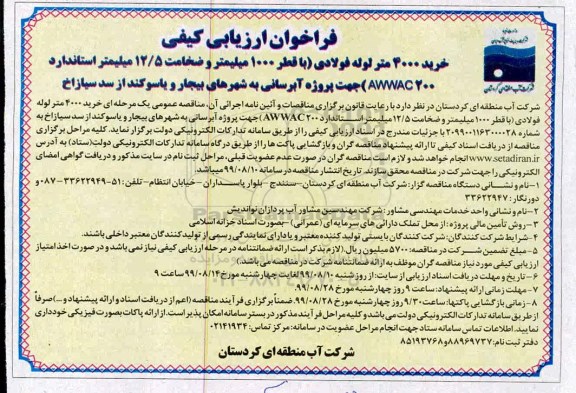 فراخوان ارزیابی کیفی
خرید ۴۰۰۰ متر لوله فولادی (با قطر ۱۰۰۰ میلیمتر و ضخامت ۱۲/۵ میلیمتر استاندارد
AWWAC ۲۰۰) جهت پروژه آبرسانی به شهرهای بیجار و یاسوکند از سد سیازاخ
شرکت آب منطقه ای کردستان در نظر دارد با رعایت قانون برگزاری مناقصات و آئین نامه اجرائی آن، مناقصه عمومی یک مرحله ای خرید ۴۰۰۰ متر لوله
فولادی (با قطر ۱۰۰۰ میلیمتر و ضخامت ۱۲/۵ میلیمتر استاندارد AWWAC۲۰۰) جهت پروژه آبرسانی به شهرهای بیجار و یاسوکند از سد سیازاخ به
شماره ۲۰۹۹۰۰۱۱۶۳۰۰۰۰۲۸ با جزئیات مندرج در اسناد ارزیابی کیفی را از طریق سامانه تدارکات الکترونیکی دولت برگزار نماید. کلیه مراحل برگزاری
مناقصه از دریافت اسناد کیفی تا ارائه پیشنهاد مناقصه گران و بازگشایی پاکت ها را از طریق درگاه سامانه تدارکات الکترونیکی دولت (ستاد) به آدرس
www.setadiran.ir انجام خواهد شد و لازم است مناقصه گران در صورت عدم عضویت قبلی، مراحل ثبت نام در سایت مذکور و دریافت گواهی امضای
الکترونیکی را جهت شرکت در مناقصه محقق سازند. تاریخ انتشار مناقصه در سامانه ۹۹/۰۸/۱۰ میباشد.
۱- نام و نشانی دستگاه مناقصه گزار: شرکت آب منطقه ای کردستان - سنندج - بلوار پاسداران - خیابان انتظام - تلفن: ۵۱-۳۳۶۲۲۹۴۹-۰۸۷ و
دورنگار: ۳۳۶۲۲۹۴۷
۲- نام و نشانی واحد خدمات مهندسی مشاور: شرکت مهندسین مشاور آب پردازان نواندیش
۳- روش تأمین مالی پروژه: از محل تملک دارائی های سرمایه ای (عمرانی) - بصورت اسناد خزانه اسلامی
۴- شرایط شرکت کنندگان: شرکت کنندگان بایستی تولید کننده معتبر و یا دارای نمایندگی رسمی از تولید کنندگان معتبر داخلی باشند.
۵- مبلغ تضمین شرکت در مناقصه: ۵۷۰۰ میلیون ریال. (لازم بذکر است ارائه ضمانتنامه در مرحله ارزیابی کیفی نیاز نمی باشد و در صورت اخذ امتیاز
ارزیابی کیفی مورد نیاز مناقصه گران موظف به ارائه ضمانتنامه شرکت در مناقصه می باشند.)
۶- تاریخ و مهلت دریافت اسناد ارزیابی از سایت: از روز شنبه ۹۹/۰۸/۱۰ لغایت چهارشنبه مورخ ۹۹/۰۸/۱۴ ساعت ۹
۷- مهلت زمانی ارائه پیشنهاد: ساعت ۹ روز چهارشنبه مورخ ۹۹/۰۸/۲۸.
۸- زمان بازگشایی پاکتها: ساعت ۹/۳۰ روز چهارشنبه مورخ ۹۹/۰۸/۲۸. ضمناً برگزاری فرآیند مناقصه (اعم از دریافت اسناد و ارائه پیشنهاد و ...) صرفاً
از طریق سامانه تدارکات الکترونیکی دولت می باشد و کلیه مراحل فرآیند مذکور در بستر سامانه امکان پذیر است. از ارائه پاکات بصورت فیزیکی خودداری
نمایید. اطلاعات تماس سامانه ستاد جهت انجام مراحل عضویت در سامانه: مرکز تماس: ۰۲۱۴۱۹۳۴
دفتر ثبت نام: ۸۸۹۶۹۷۳۷ و ۸۵۱۹۳۷۶۸
شرکت آب منطقه ای کردستان